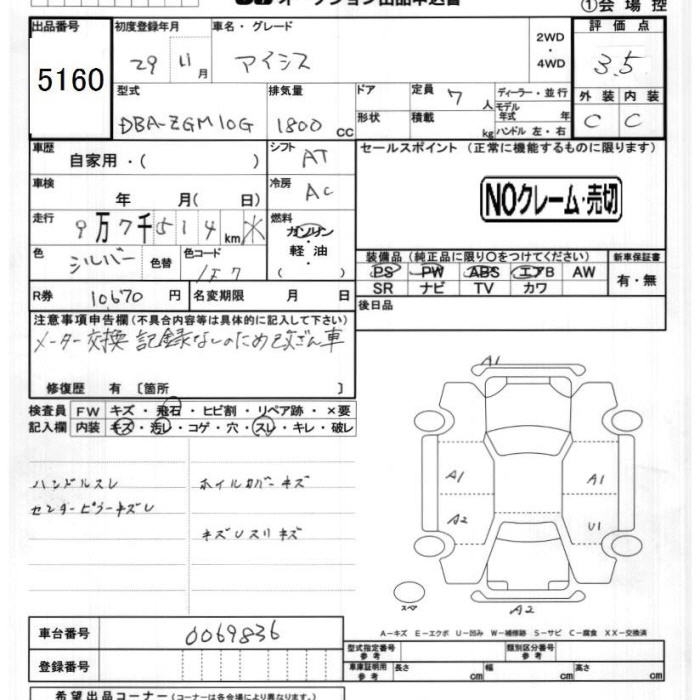 オークション出品申込書
①会場控
出品番号 初度登録年月 車名・グレード 評価点
5160 29 11月 アイシス 2WD・4WD 3.5
型式 排気量 ドア 定員 7人 ディーラー・並行 外装 内装
DBA-ZGM10G 1800CC 形状 積載 kg モデル年式 年 C C
ハンドル 左・右
車歴 自家用・( ) シフト AT セールスポイント (正常に機能するものに限ります)
車検 年 月( 日) 冷房 AC NOクレーム・売切
走行 9万7千514km 燃料 ガソリン・軽油 ( )
色 シルバー 色替 色コード 装備品(純正品に限り○をつけてください) 新車保証書
PS PW ABS エアB AW 有・無
SR ナビ TV カワ
R券 10,670円 名変期限 月 日 後日品
注意事項申告欄(不具合内容等は具体的に記入して下さい)
メーター交換 記録なしのため改ざん車
修復歴 有 〔箇所 〕
検査員 FW キズ・飛石・ヒビ割・リペア跡・×要
記入欄 内装 キズ・汚レ・コゲ・穴・スレ・キレ・破レ
ハンドルスレ ホイルカバーキズ
センターピラーキズし
キズUスリキズ
A1
A1 A1
A2 U1
A2
スペア
A-キズ E-エクボ U-凹み W-補修跡 S-サビ C-腐食 XX-交換済
車台番号 0069836
型式指定番号 参考 類別区分番号 参考
登録番号 車庫証明用 参考 長さ cm 幅 cm 高さ cm
希望出品コーナー(コーナーは各会場により異なります。)